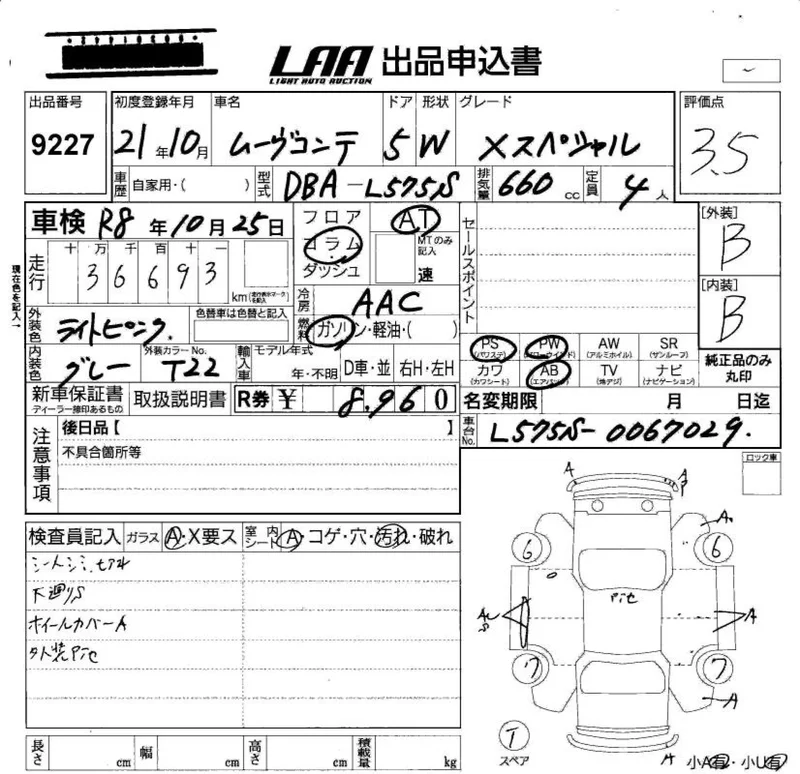 LAA 出品申込書
LIGHT AUTO AUCTION
出品番号 初度登録年月 車名 ドア 形状 グレード 評価点
9227 21年10月 ムーヴコンテ 5 W Xスペシャル 3.5
車歴 自家用・( ) 型式 DBA-L575S 排気量 660cc 定員 4人
車検 R8年10月25日 フロア AT セールスポイント [外装]
コラム MTのみ記入 B
ダッシュ 速
走行 十 万 千 百 十 一
36693 km (走行表示マークを記入)
現在色を記入→
冷房 AAC [内装]
外装色 ライトピンク 色替車は色替と記入 燃料 ガソリン・軽油・( ) B
内装色 グレー 外装カラーNo. T22 輸入車 モデル年式 年・不明 D車・並 右H・左H
PS (パワステ) PW (パワーウインド) AW (アルミホイル) SR (サンルーフ) 純正品のみ丸印
カワ (カワシート) AB (エアバッグ) TV (地デジ) ナビ (ナビゲーション)
新車保証書 ディーラー捺印あるもの 取扱説明書 R券 ¥ 8,960 名変期限 月 日迄
注意事項 後日品【 】 車台No. L575S-0067029.
不具合箇所等 ロック車
検査員記入 ガラス A・X要ス 室内シート A・コゲ・穴・汚れ・破れ
下廻りS
ホイールカバーA
外装
A A
A
6 6
A A
S
7 7
A
T
スペア
小A有・小U有
長さ cm 幅 cm 高さ cm 積載量 kg